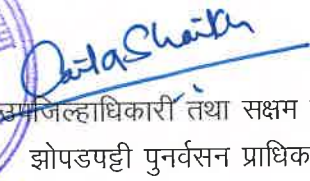 उपजिल्हाधिकारी तथा सक्षम
झोपडपट्टी पुनर्वसन प्राधिक